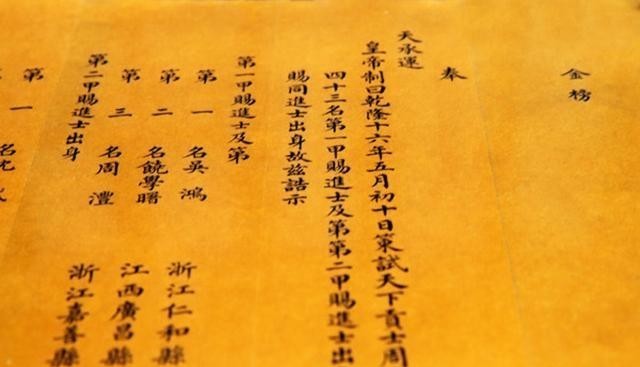 金榜
奉
天承運
皇帝制曰乾隆十六年五月初十日策試天下貢士周
四十三名第一甲賜進士及第第二甲賜進士出
賜同進士出身故茲誥示
第一甲賜進士及第
第一名吳鴻 浙江仁和縣
第二名饒學曙 江西廣昌縣
第三名周灃 浙江嘉善縣
第二甲賜進士出身
第一名沈